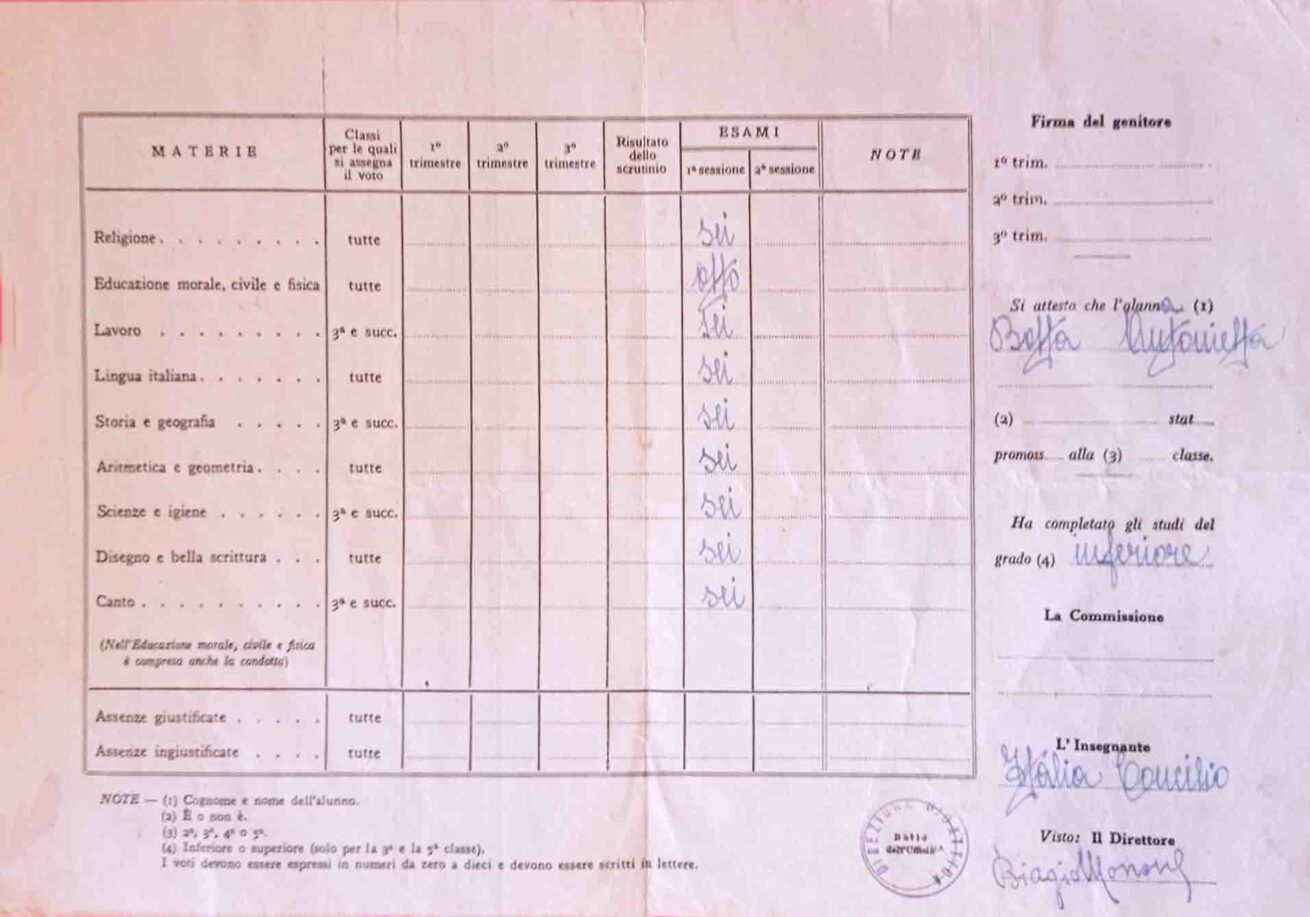 MATERIE
Classi per le quali si assegna il voto
1º trimestre
2º trimestre
3º trimestre
Risultato dello scrutinio
ESAMI
1ª sessione 2ª sessione
NOTE
Religione . . . . . . . . . tutte sei
Educazione morale, civile e fisica tutte otto
Lavoro . . . . . . . . . 3ª e succ. sei
Lingua italiana . . . . . . . tutte sei
Storia e geografia . . . . . 3ª e succ. sei
Aritmetica e geometria . . . . tutte sei
Scienze e igiene . . . . . . 3ª e succ. sei
Disegno e bella scrittura . . . tutte sei
Canto . . . . . . . . . . 3ª e succ. sei
(Nell'Educazione morale, civile e fisica
è compresa anche la condotta)
Assenze giustificate . . . . . tutte
Assenze ingiustificate . . . . tutte
NOTE — (1) Cognome e nome dell'alunno.
(2) È o non è.
(3) 2ª, 3ª, 4ª o 5ª.
(4) Inferiore o superiore (solo per la 3ª e la 5ª classe).
I voti devono essere espressi in numeri da zero a dieci e devono essere scritti in lettere.
Firma del genitore
1º trim.
2º trim.
3º trim.
Si attesta che l'alunna (1)
Botta Antonietta
(2) stat
promoss alla (3) classe.
Ha completato gli studi del
grado (4) inferiore
La Commissione
L'Insegnante
Italia Concilio
Visto: Il Direttore
Biagio
DIREZIONE DIDATTICA